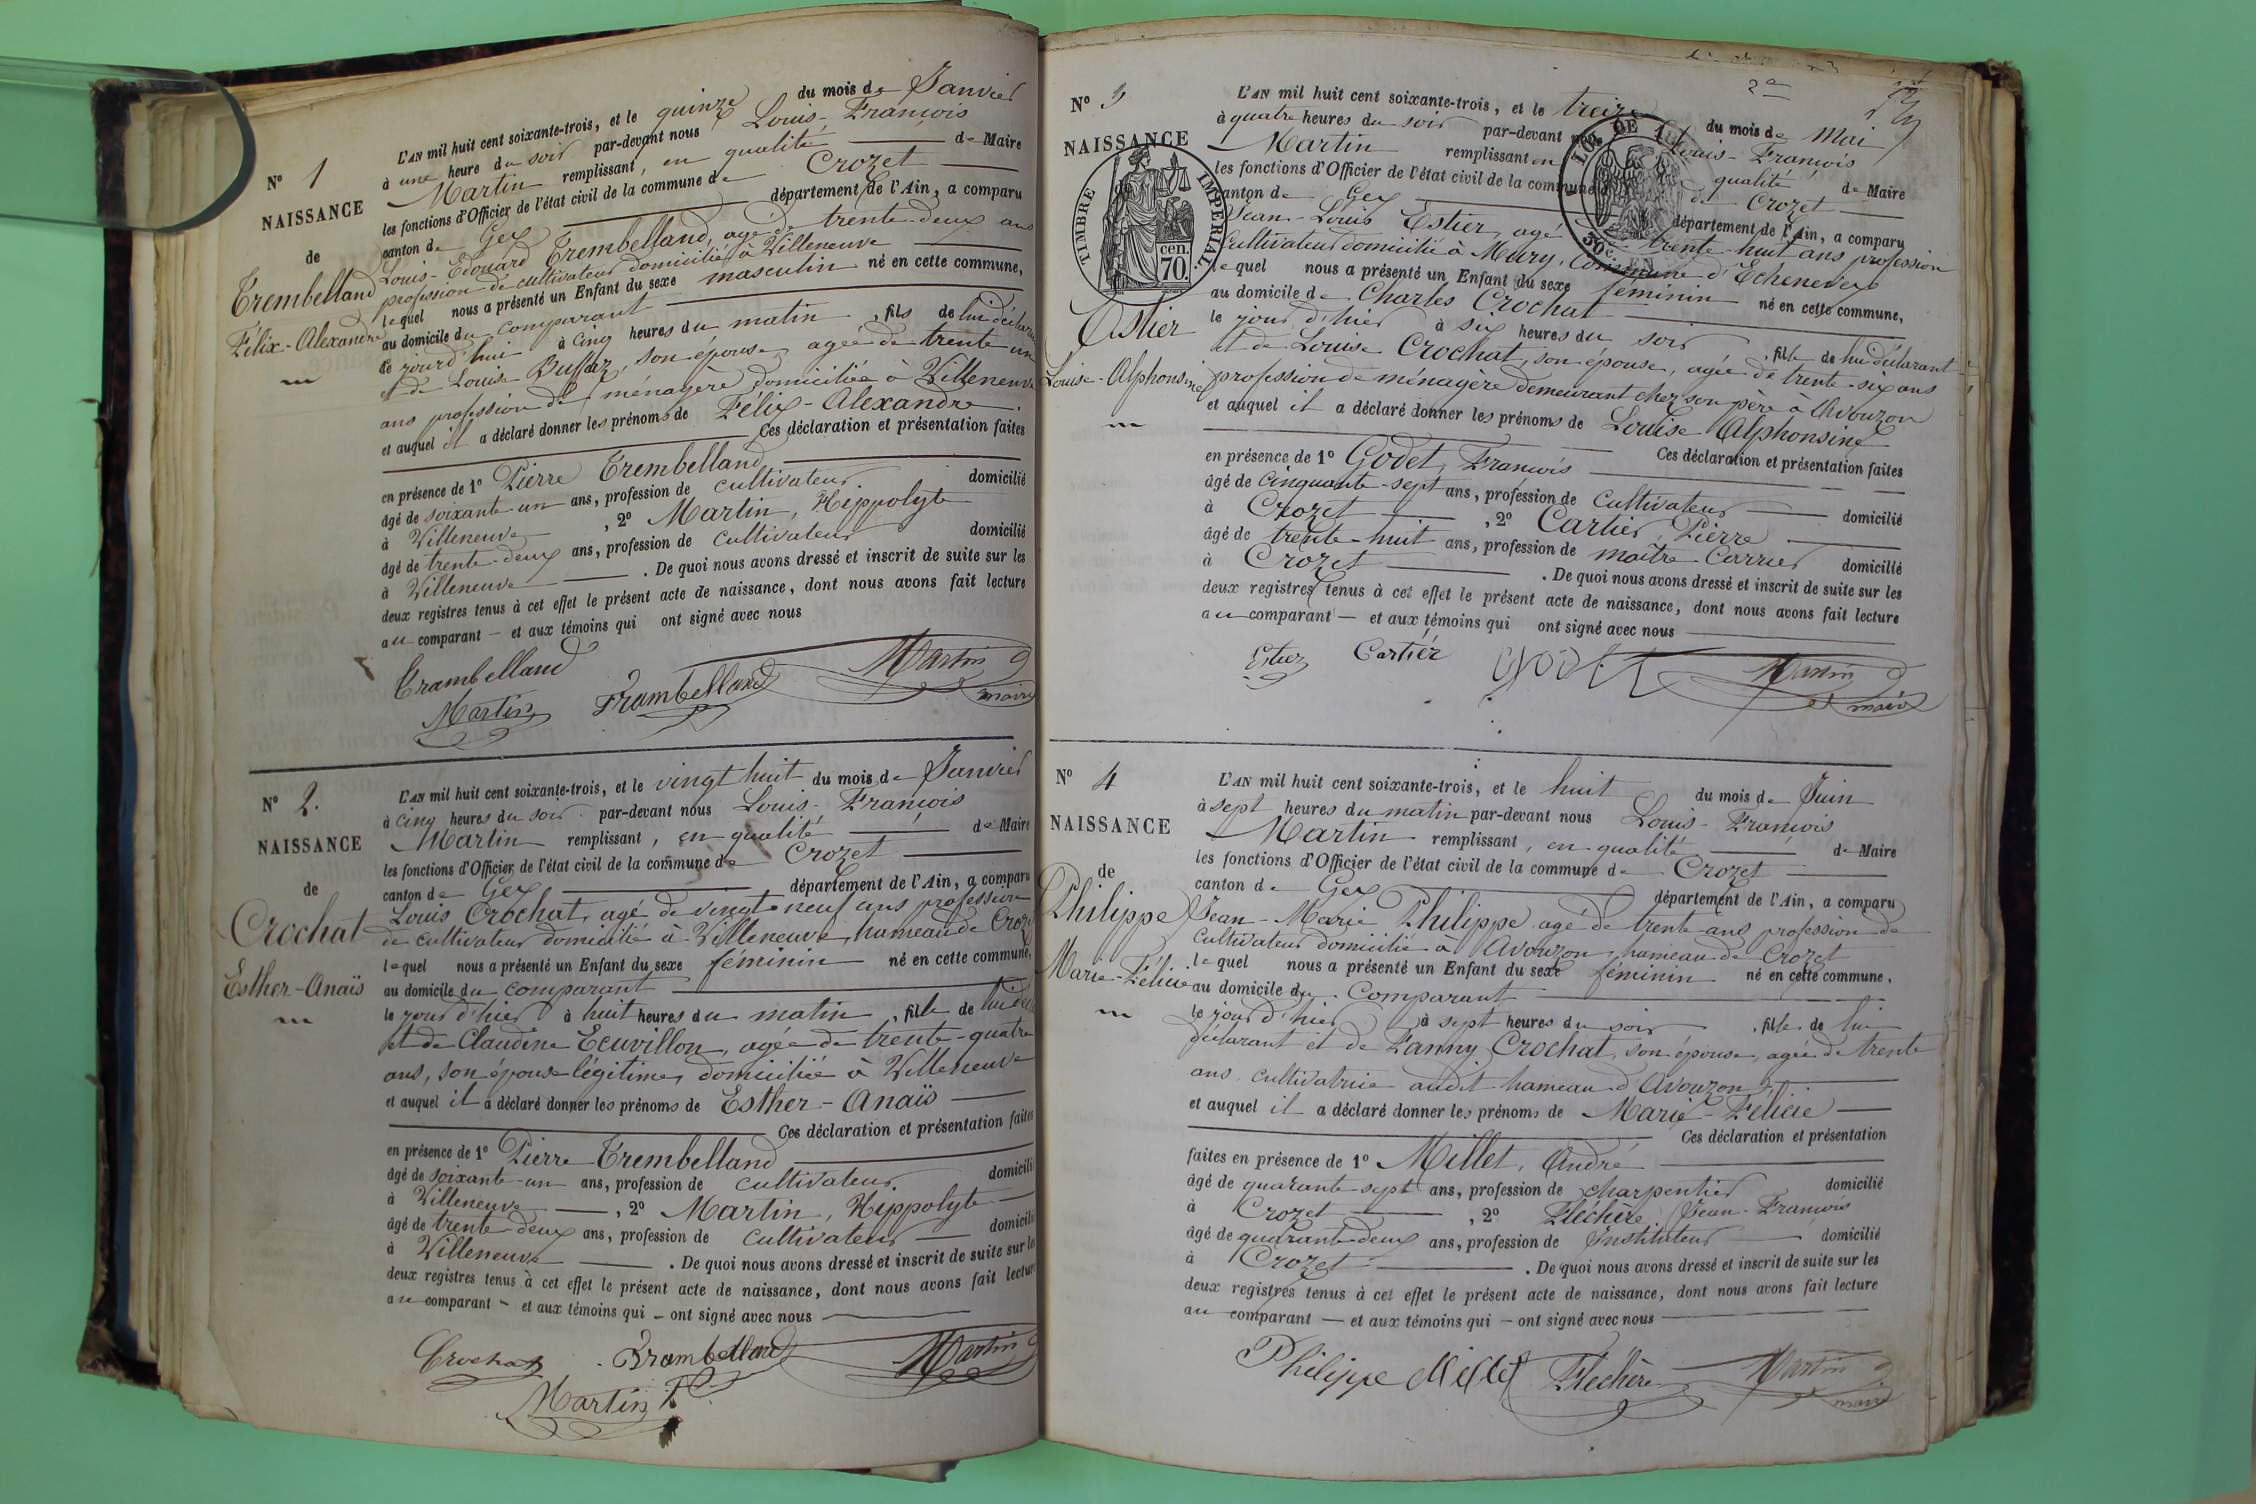 N° 1
NAISSANCE
de
Trembelland
Félix-Alexandre
L'AN mil huit cent soixante-trois, et le quinze du mois de Janvier
à une heure du soir par-devant nous Louis-François
Martin remplissant, en qualité de Maire
les fonctions d'Officier de l'état civil de la commune de Crozet
canton de Gex département de l'Ain, a comparu
Louis-Edouard Trembelland, agé de trente-deux ans
profession de cultivateur domicilié à Villeneuve
lequel nous a présenté un Enfant du sexe masculin né en cette commune,
au domicile du comparant
ce jourd'hui à cinq heures du matin, fils de lui déclarant
et de Louise Buffaz, son épouse, agée de trente un
ans profession de ménagère domiciliée à Villeneuve
et auquel il a déclaré donner les prénoms de Félix-Alexandre.
Ces déclaration et présentation faites
en présence de 1° Pierre Trembelland
âgé de soixante-un ans, profession de cultivateur domicilié
à Villeneuve, 2° Martin, Hippolyte
âgé de trente-deux ans, profession de cultivateur domicilié
à Villeneuve. De quoi nous avons dressé et inscrit de suite sur les
deux registres tenus à cet effet le présent acte de naissance, dont nous avons fait lecture
au comparant — et aux témoins qui ont signé avec nous
Trambelland
Martin Trambelland Martin
maire
N° 2.
NAISSANCE
de
Crochat
Esther-Anaïs
L'AN mil huit cent soixante-trois, et le vingt huit du mois de Janvier
à cinq heures du soir par-devant nous Louis-François
Martin remplissant, en qualité de Maire
les fonctions d'Officier de l'état civil de la commune de Crozet
canton de Gex département de l'Ain, a comparu
Louis Crochat, agé de vingt-neuf ans profession
de cultivateur domicilié à Villeneuve, hameau de Crozet
lequel nous a présenté un Enfant du sexe féminin né en cette commune,
au domicile du comparant
le jour d'hier à huit heures du matin, fille de lui
et de Claudine Ecuvillon, agée de trente-quatre
ans, son épouse légitime, domiciliée à Villeneuve
et auquel il a déclaré donner les prénoms de Esther-Anaïs
Ces déclaration et présentation faites
en présence de 1° Pierre Trembelland
âgé de soixante-un ans, profession de cultivateur domicilié
à Villeneuve, 2° Martin, Hippolyte
âgé de trente-deux ans, profession de cultivateur domicilié
à Villeneuve. De quoi nous avons dressé et inscrit de suite sur les
deux registres tenus à cet effet le présent acte de naissance, dont nous avons fait lecture
au comparant - et aux témoins qui - ont signé avec nous
Crochat Trambelland Martin
Martin
2e
N° 3
NAISSANCE
de
TIMBRE IMPÉRIAL.
70. cen.
50 c. EN
Estier
Louise-Alphonsine
L'AN mil huit cent soixante-trois, et le treize du mois de Mai
à quatre heures du soir par-devant nous Louis-François
Martin remplissant en qualité de Maire
les fonctions d'Officier de l'état civil de la commune de Crozet
canton de Gex département de l'Ain, a comparu
Jean-Louis Estier, agé trente-huit ans profession
Cultivateur domicilié à Mury, Commune d'Echenevex
lequel nous a présenté un Enfant du sexe féminin né en cette commune,
au domicile de Charles Crochat
le jour d'hier à six heures du soir, fille de lui déclarant
et de Louise Crochat, son épouse, agée de trente-six ans
profession de ménagère demeurant chez son père à Avouzon
et auquel il a déclaré donner les prénoms de Louise Alphonsine
Ces déclaration et présentation faites
en présence de 1° Godet, François
âgé de Cinquante-sept ans, profession de Cultivateur domicilié
à Crozet, 2° Cartier, Pierre
âgé de trente-huit ans, profession de maître-Carrier domicilié
à Crozet. De quoi nous avons dressé et inscrit de suite sur les
deux registres tenus à cet effet le présent acte de naissance, dont nous avons fait lecture
au comparant — et aux témoins qui ont signé avec nous
Estier Cartier Godet Martin
maire
N° 4
NAISSANCE
de
Philippe
Marie-Félicie
L'AN mil huit cent soixante-trois, et le huit du mois de Juin
à sept heures du matin par-devant nous Louis-François
Martin remplissant, en qualité de Maire
les fonctions d'Officier de l'état civil de la commune de Crozet
canton de Gex département de l'Ain, a comparu
Jean-Marie Philippe agé de trente ans profession de
Cultivateur domicilié à Avouzon, hameau de Crozet
lequel nous a présenté un Enfant du sexe féminin né en cette commune.
au domicile du Comparant
le jour d'hier à sept heures du soir, fille de lui
déclarant et de Fanny Crochat, son épouse, agée de trente
ans, cultivatrice audit hameau d'Avouzon,
et auquel il a déclaré donner les prénoms de Marie-Félicie
Ces déclaration et présentation
faites en présence de 1° Millet, André
âgé de quarante-sept ans, profession de charpentier domicilié
à Crozet, 2° Fléchère, Jean-François
âgé de quarante-deux ans, profession de Instituteur domicilié
à Crozet. De quoi nous avons dressé et inscrit de suite sur les
deux registres tenus à cet effet le présent acte de naissance, dont nous avons fait lecture
au comparant — et aux témoins qui - ont signé avec nous
Philippe Millet Fléchère Martin
maire